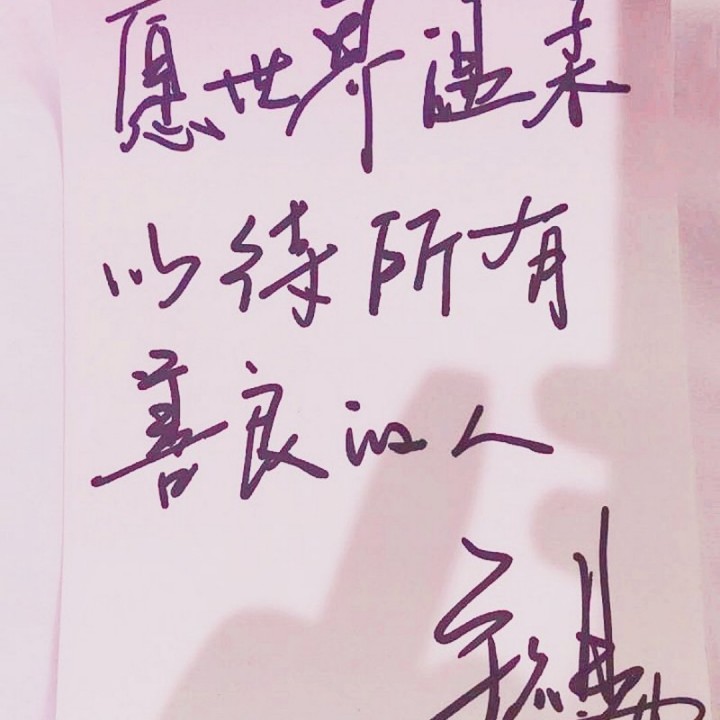 愿世界温柔
以待所有
善良的人